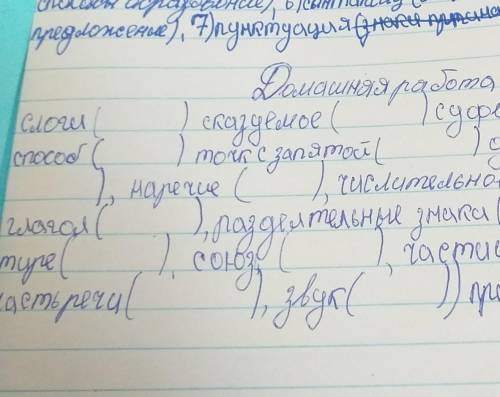 способы образования), 6) синтаксис (
предложение), 7) пунктуация (знаки препина
Домашняя работа
слоги ( ) сказуемое ( ) суф
способ ( ) точк с запятой (
), наречие ( ), числительно
глагол ( ), разделятельные знаки (
тире ( ), союз, ( ), части
часть речи ( ), звук ( ))